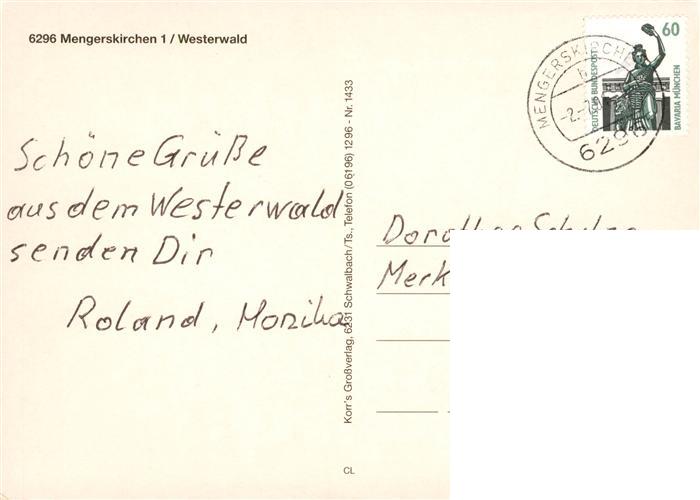 6296 Mengerskirchen 1 / Westerwald
Schöne Grüße
aus dem Westerwald
senden Dir
Roland, Monika
Korr's Großverlag, 6231 Schwalbach/Ts., Telefon (06196) 1296 - Nr. 1433
CL
60
DEUTSCHE BUNDESPOST
BAVARIA MÜNCHEN
MENGERSKIRCHEN
6296